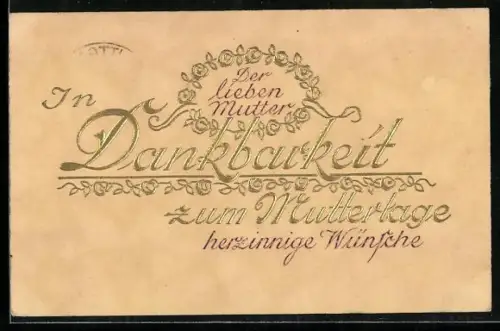 Der
lieben
Mutter
In
Dankbarkeit
zum Muttertage
herzinnige Wünsche